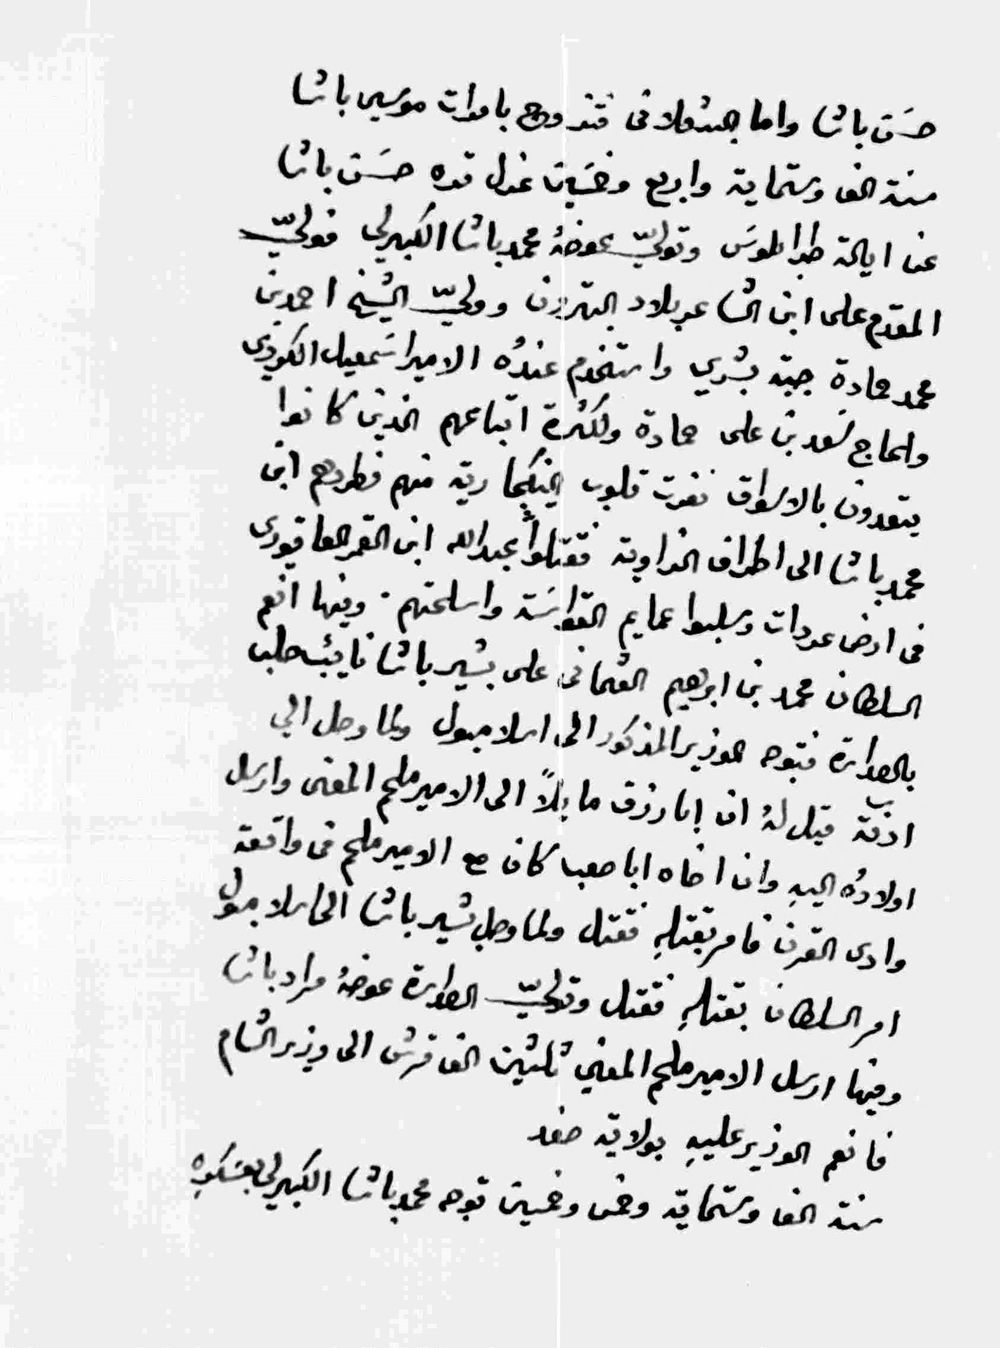 حسَن باشا واما البندقلانى فتزوج بامرات موسى باشا
سنة الف وستماية واربع وخمسَين عزل قره حسَن باشا
عن ايالة طرابلوسَ وتولىّ عوضهُ محمد باشا الكبرلي فولىّ
المقدم على ابن الشاعر بلاد البترون وولىّ الشيخ احمد بن
محمد حمادة جبة بشري واستخدم عندُه الامير اسَمعيل الكردي
والحاج سَعد بن على حمادة ولكثرة اتباعهم الذين كانوا
يتعدون بالاسواق نفرت قلوب الينكجارية منهم فطردهم ابن
محمد باشا الى اطراف الزاوية فقتلوا عبدالله ابن القمر العاقورى
فى ارض عردات وسلبوا عمايم القوّاسَة واسلحتهم . وفيها انعم
السلطان محمد بن ابرهيم العثمانى على بشير باشا نايب حلب
بالصدارة فتوجه الوزير المذكور الى اسلامبول ولما وصل الي
اذنة قيل لهُ ان ابا رزق مايلاً الى الامير ملحم المعنى وارسل
اولادُه اليهِ وان اخاه ابا صعب كان مع الامير ملحم فى واقعة
وادى القرن فامر بقتلهِ فقتل ولما وصل بشير باشا الى اسلامبول
امر السلطان بقتلهِ فقتل وتولىّ الصدارة عوضهُ مراد باشا
وفيها ارسل الامير ملحم المعني ثلثين الف قرش الى وزير الشام
فانعم الوزير عليهِ بولاية صفد
سنة الف وستماية وخمس وخمسين توجه محمد باشا الكبرلي بعسَكرهِ